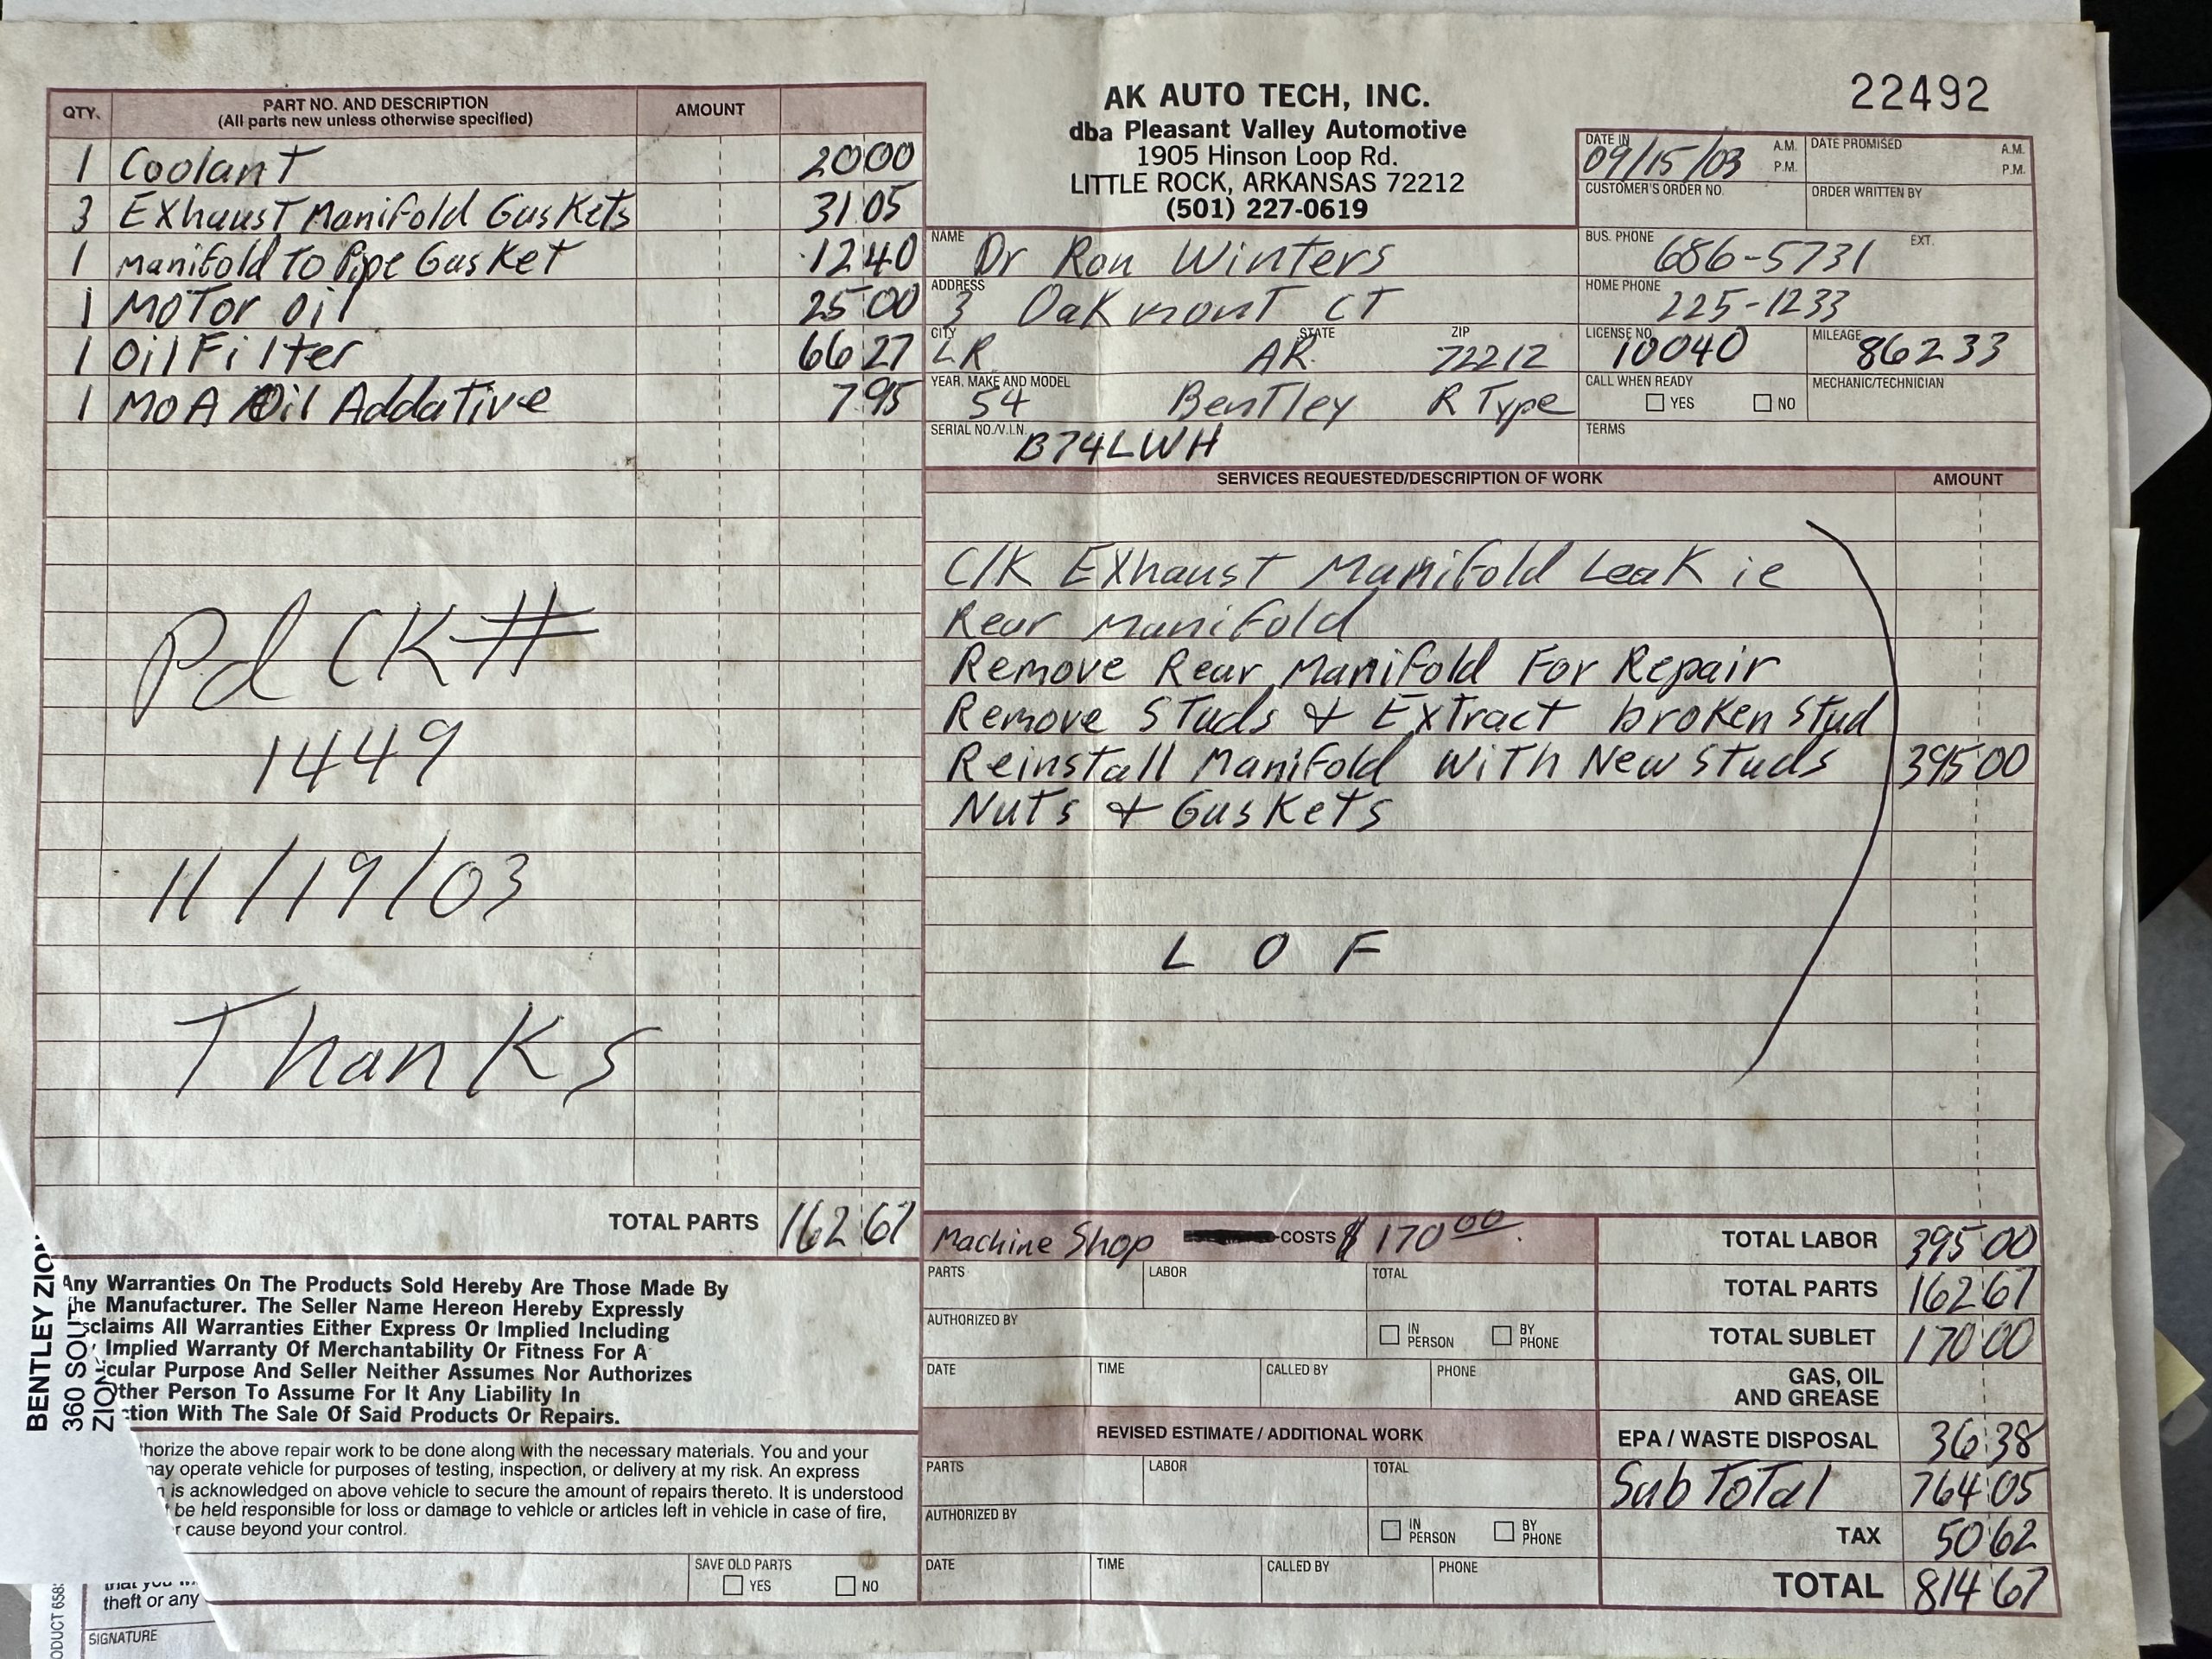 22492
AK AUTO TECH, INC.
dba Pleasant Valley Automotive
1905 Hinson Loop Rd.
LITTLE ROCK, ARKANSAS 72212
(501) 227-0619
QTY. PART NO. AND DESCRIPTION AMOUNT
(All parts new unless otherwise specified)
1 Coolant 20 00
3 Exhaust Manifold Gaskets 31 05
1 Manifold To Pipe Gasket 12 40
1 Motor oil 25 00
1 Oil Filter 66 27
1 MOA Oil Addative 7 95
Pd CK #
1449
11/19/03
Thanks
TOTAL PARTS 162 67
Any Warranties On The Products Sold Hereby Are Those Made By
he Manufacturer. The Seller Name Hereon Hereby Expressly
sclaims All Warranties Either Express Or Implied Including
Implied Warranty Of Merchantability Or Fitness For A
icular Purpose And Seller Neither Assumes Nor Authorizes
Other Person To Assume For It Any Liability In
ction With The Sale Of Said Products Or Repairs.
thorize the above repair work to be done along with the necessary materials. You and your
may operate vehicle for purposes of testing, inspection, or delivery at my risk. An express
n is acknowledged on above vehicle to secure the amount of repairs thereto. It is understood
be held responsible for loss or damage to vehicle or articles left in vehicle in case of fire,
r cause beyond your control.
SAVE OLD PARTS
YES NO
theft or any
SIGNATURE
BENTLEY ZION
360 SOUT
ZION
DATE IN 09/15/03 A.M. P.M. DATE PROMISED A.M. P.M.
CUSTOMER'S ORDER NO. ORDER WRITTEN BY
NAME Dr Ron Winters BUS. PHONE 686-5731 EXT.
ADDRESS 3 Oakmont CT HOME PHONE 225-1233
CITY LR STATE AR ZIP 72212 LICENSE NO. 10040 MILEAGE 86233
YEAR, MAKE AND MODEL 54 Bentley R Type CALL WHEN READY YES NO MECHANIC/TECHNICIAN
SERIAL NO./V.I.N. B74LWH TERMS
SERVICES REQUESTED/DESCRIPTION OF WORK AMOUNT
C/K Exhaust Manifold Leak ie
Rear Manifold
Remove Rear Manifold For Repair
Remove Studs & Extract broken stud
Reinstall Manifold With New Studs 395 00
Nuts & Gaskets
L O F
Machine Shop COSTS $ 170 00
PARTS LABOR TOTAL
AUTHORIZED BY IN PERSON BY PHONE
DATE TIME CALLED BY PHONE
REVISED ESTIMATE / ADDITIONAL WORK
PARTS LABOR TOTAL
AUTHORIZED BY IN PERSON BY PHONE
DATE TIME CALLED BY PHONE
TOTAL LABOR 395 00
TOTAL PARTS 162 67
TOTAL SUBLET 170 00
GAS, OIL
AND GREASE
EPA / WASTE DISPOSAL 36 38
Sub Total 764 05
TAX 50 62
TOTAL 814 67